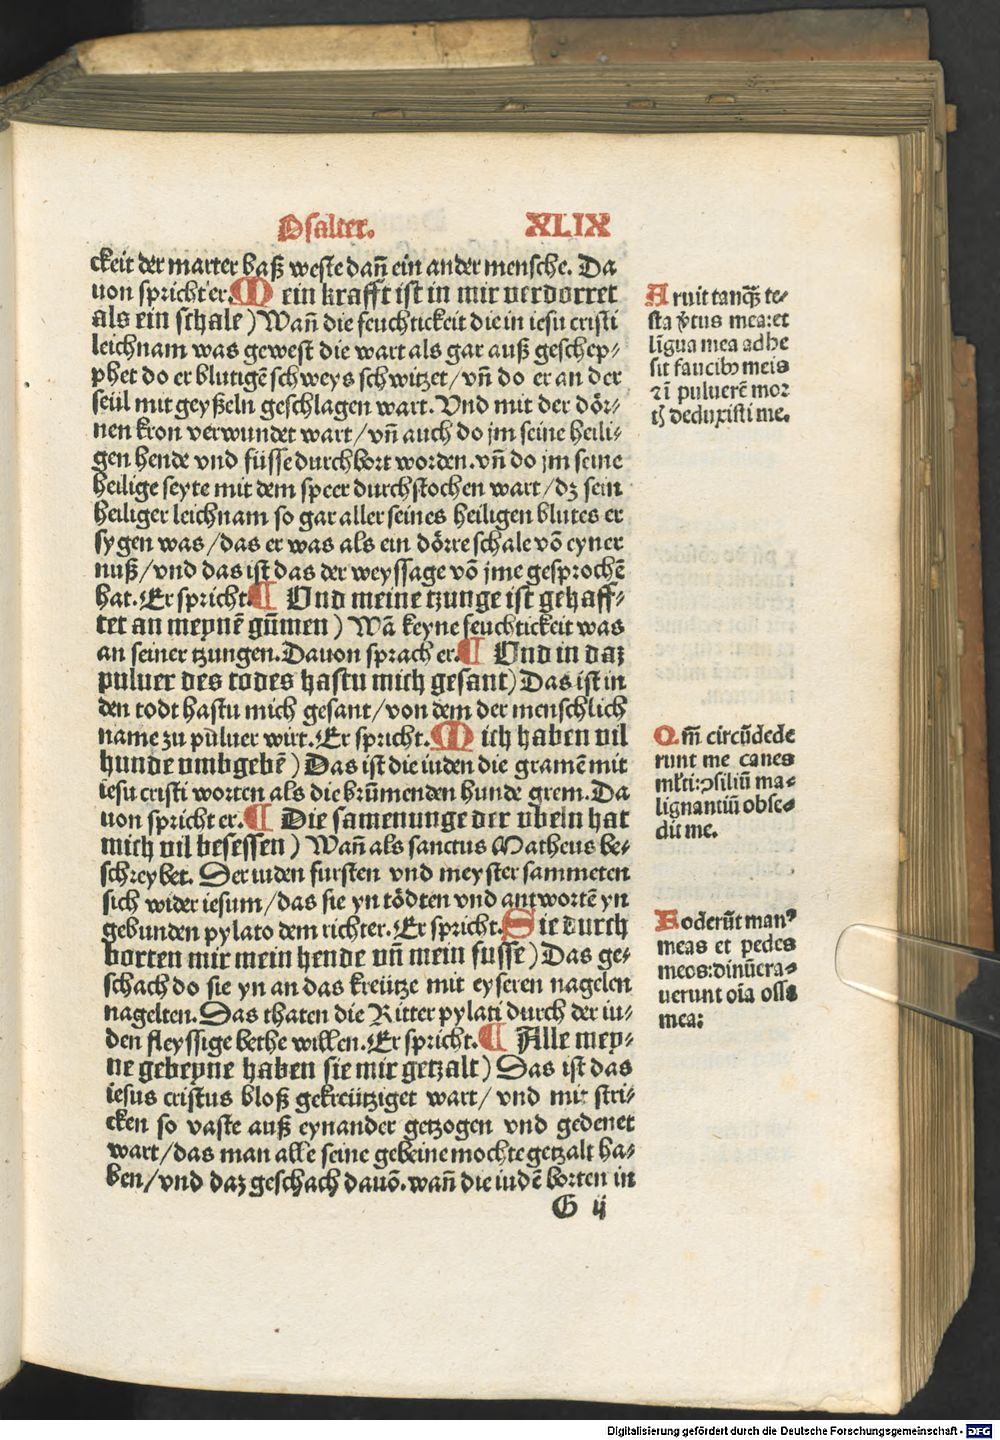 Psalter. XLIX
ckeit der marter baß weste dañ ein ander mensche. Da
uon spricht er. Mein krafft ist in mir verdorret
als ein schale) Wañ die feuchtickeit die in iesu cristi
leichnam was gewest die wart als gar auß geschep⸗
phet do er blutigē schweys schwitzet/ vñ do er an der
seül mit geyßeln geschlagen wart. Vnd mit der dör⸗
nen kron verwundet wart/ vñ auch do jm seine heili⸗
gen hende vnd füsse durchbort worden. vñ do jm seine
heilige seyte mit dem speer durchstochen wart/ dz sein
heiliger leichnam so gar aller seines heiligen blutes er
sygen was/ das er was als ein dörre schale vō eyner
nuß/ vnd das ist das der weyssage vō jme gesprochē
hat. Er spricht. ¶ Vnd meine tzunge ist gehaff⸗
tet an meynē gūmen) Wā keyne feuchtickeit was
an seiner tzungen. Dauon sprach er. ¶ Vnd in daz
puluer des todes hastu mich gesant) Das ist in
den todt hastu mich gesant/ von dem der menschlich
name zu puluer wirt. Er spricht. Mich haben vil
hunde vmbgebē) Das ist die iuden die gramē mit
iesu cristi worten als die brūmenden hunde grem. Da
uon spricht er. ¶ Die samenunge der vbeln hat
mich vil besessen) Wañ als sanctus Matheus be⸗
schreybet. Der iuden fursten vnd meyster sammeten
sich wider iesum/ das sie yn tödten vnd antwortē yn
gebunden pylato dem richter. Er spricht. Sie durch
borten mir mein hende vñ mein fusse) Das ge⸗
schach do sie yn an das kreütze mit eyseren nagelen
nagelten. Das thaten die Ritter pylati durch der iu⸗
den fleyssige bethe willen. Er spricht. ¶ Alle mey⸗
ne gebeyne haben sie mir getzalt) Das ist das
iesus cristus bloß gekreütziget wart/ vnd mit stri⸗
cken so vaste auß eynander getzogen vnd gedenet
wart/ das man alle seine gebeine mochte getzalt ha⸗
ben/ vnd daz geschach dauō. wañ die iudē borten in
G ij
Aruit tanq̄ te⸗
sta v̾tus mea: et
līgua mea adhe
sit faucibꝰ meis
⁊ ī puluerē mor
tꝭ deduxisti me.
Qm̄ circūdede
runt me canes
ml̄ti: ꝯsiliū ma⸗
lignantiū obse⸗
dit me.
Foderūt manꝰ
meas et pedes
meos: dinūera⸗
uerunt oīa ossa
mea:
Digitalisierung gefördert durch die Deutsche Forschungsgemeinschaft - DFG